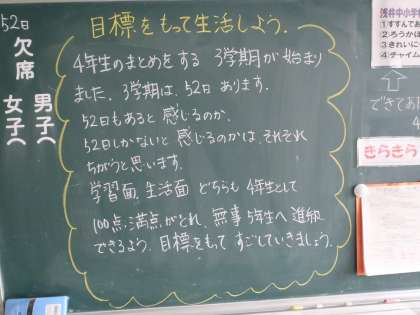 目標をもって生活しよう.
4年生のまとめをする 3学期が 始まり
ました. 3学期は. 52日 あります.
52日もあると 感じるのか.
52日しかないと 感じるのかは、それぞれ
ちがうと思います.
学習面、生活面 どちらも 4年生として
100点満点がとれ、無事 5年生へ 進級
できるよう. 目標をもって すごしていきましょう.
52日
欠席
男子(
女子(
浅井中小学校
1.すすんであ
2.ろうかは
3.きれいに
4.チャイム
できてお
4
きらきら